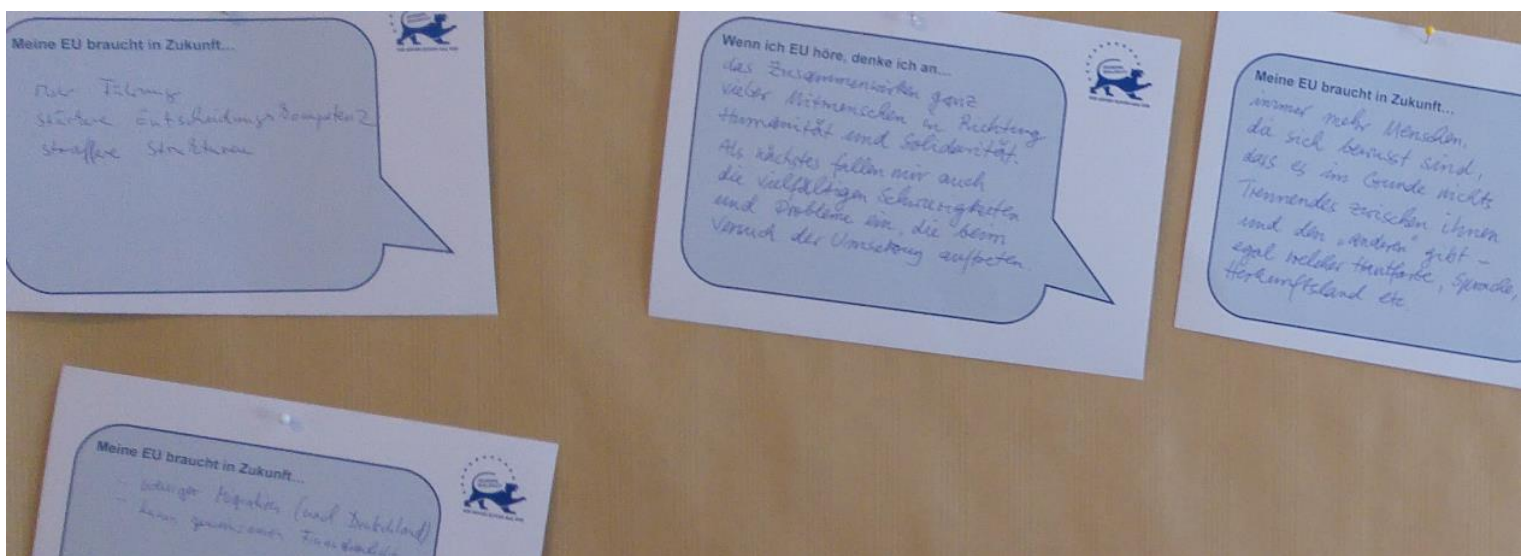 Meine EU braucht in Zukunft...
mehr Führung
stärkere Entscheidungskompetenz
straffere Strukturen
Wenn ich EU höre, denke ich an...
das Zusammenwirken ganz
vieler Mitmenschen in Richtung
Humanität und Solidarität.
Als nächstes fallen mir auch
die vielfältigen Schwierigkeiten
und Probleme ein, die beim
Versuch der Umsetzung auftreten.
Meine EU braucht in Zukunft...
immer mehr Menschen,
die sich bewusst sind,
dass es im Grunde nichts
Trennendes zwischen ihnen
und den „anderen" gibt –
egal welcher Hautfarbe, Sprache,
Herkunftsland etc.
Meine EU braucht in Zukunft...
- weniger Migration (nach Deutschland)
- keinen gemeinsamen